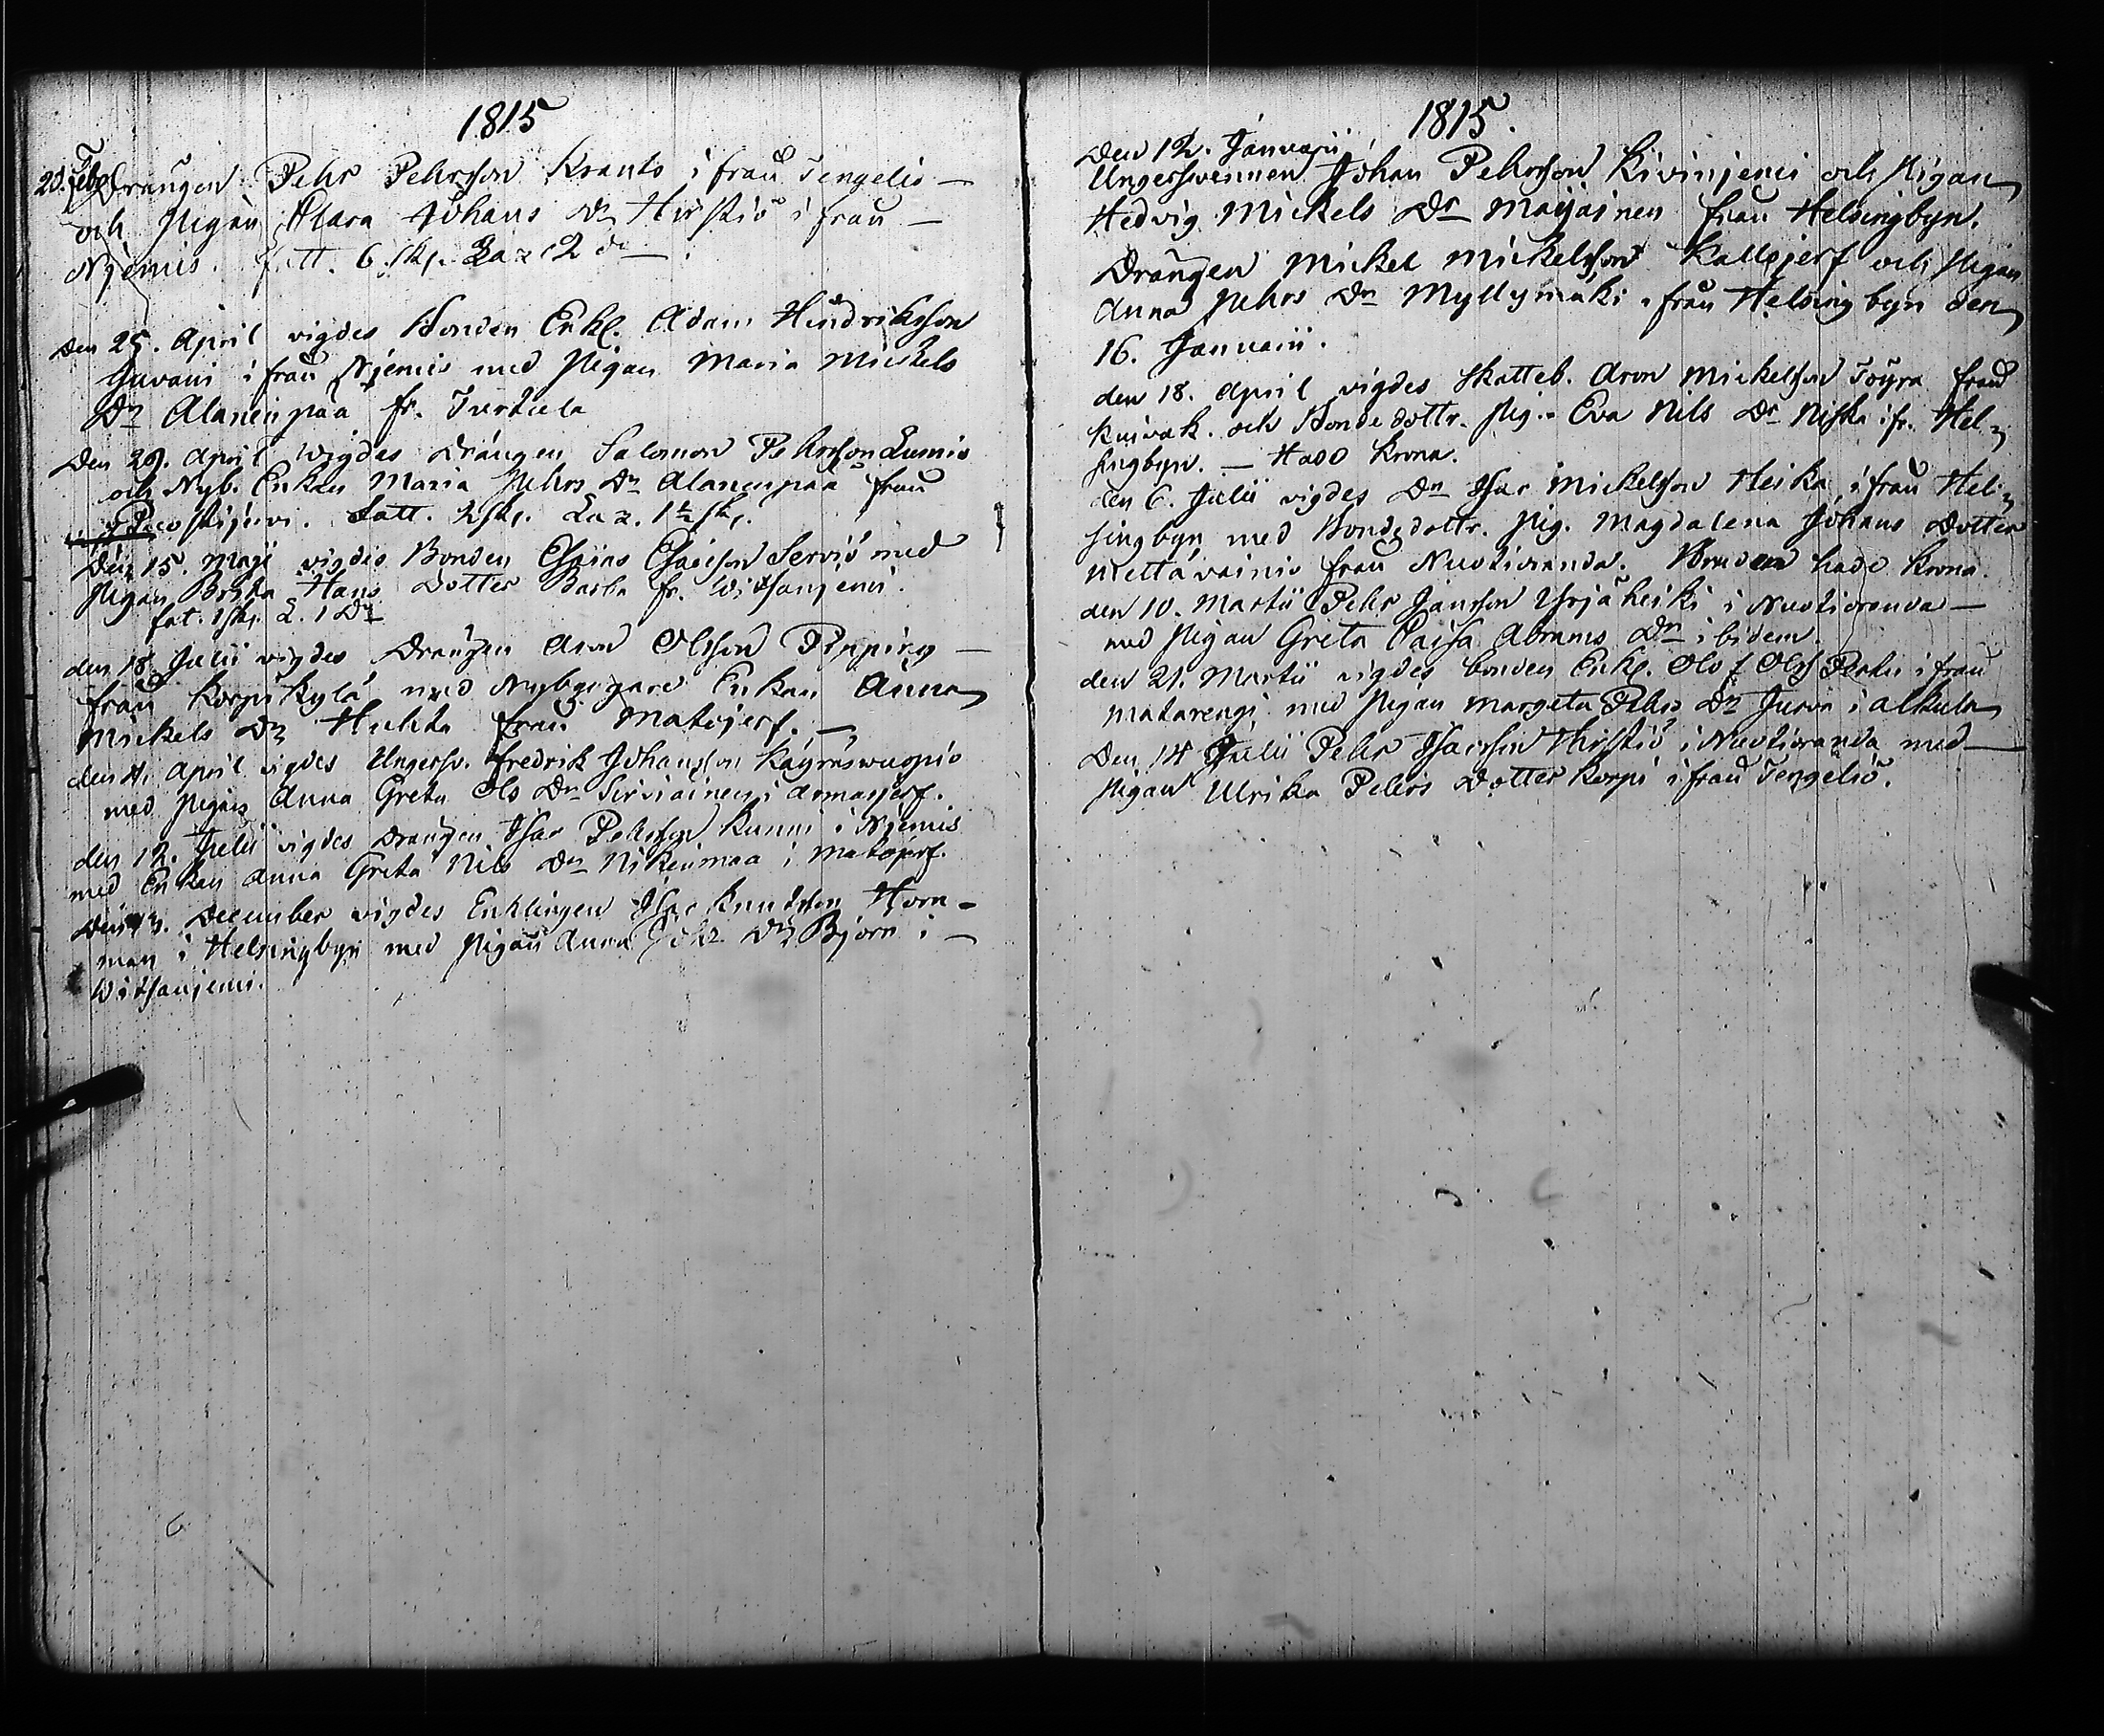 1815
20. Febr. Drängen Pehr Pehrsson Krants ifrån Tengelio —
och Pigan Clara Johans Dr Hirstiö ifrån —
Njemis. fatt. 6 sk. Laz 2 do —
Den 25. April vigdes Bonden Enkl. Adam Hindriksson
Juvani ifrån Njemis med Pigan Maria Mickels
Dr Alanenpää fr. Turtula
Den 29. April Wigdes Drängen Salomon Pehrsson Lumio
och Nyb. Enkan Maria Pehrs Dr Alanenpää från
Fatt. 2 sk. Laz. 1½ sk.
Den 15. Maji vigdes Bonden Esaias Esaiesson Servio med
Pigan Brita Hans Dotter Barba fr. Witsanjemi.
fat. 1 sk. L. 1 Do
den 18. Julii vigdes Drängen Aron Olsson Pipping —
från Korpikylä med Nybyggare Enkan Anna
Mickels Dr Huhta från Matojerf. —
den 4. April vigdes Ungersv. Fredrik Johansson Käyräswuopio
med Pigan Anna Greta Ols Dr Sirviainen i Armasjerf.
den 12. Julii vigdes Drängen Isac Pehrsson Kunni i Njemis
med Enkan Anna Greta Nils Dr Nikeinmaa i Matojerf.
December vigdes Enklingen Isac Knutsson Horn-
man i Helsingbyn med Pigan Anna Joh. Dr Björn i —
Witsanjemi.
1815.
Den 12. Januarii
Ungersvennen Johan Pehrsson Kivinjemi och Pigan
Hedvig Mickels Dr Maijainen från Helsingbyn.
Drängen Mickel Mickelsson Kallojerf och Pigan
Anna Pehrs Dr Myllymäki ifrån Helsingbyn den
16. Januarii.
den 18. April vigdes Skatteb. Aron Mickelsson Töyrä från
Kuivak. och Bondedottr. Pig. Eva Nils Dr Niska ifr. Hel-
singbyn. — Hade Krona.
den 6. Julii vigdes Dr Isac Mickelsson Heika ifrån Hel-
singbyn med Bondedottr. Pig. Magdalena Johans Dotter
Mettävainio från Nuotioranda. Bruden hade Krona.
den 10. Martii Pehr Jansson Yrjäheiki i Nuotioranda —
med Pigan Greta Caisa Abrams Dr ibidem.
den 21. Martii vigdes bonden Enkl. Olof Olss Pertu ifrån
Matarengi med Pigan Margeta Pehrs Dr Juva i Alkula
Den 14 Julii Pehr Isacsson Hirstiö i Nuotioranda med —
Pigan Ulrika Pehrs Dotter Korpi ifrån Tengeliö.